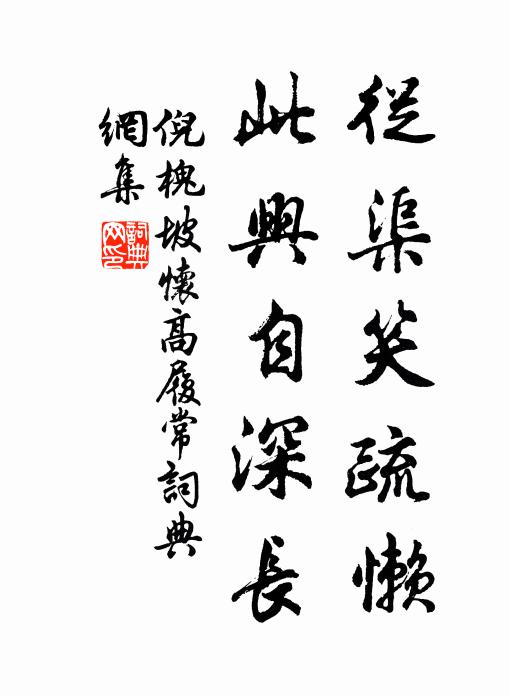 從渠笑疏懶
此興自深長
倪槐坡懷高履常詞典
網集
詞典
网印